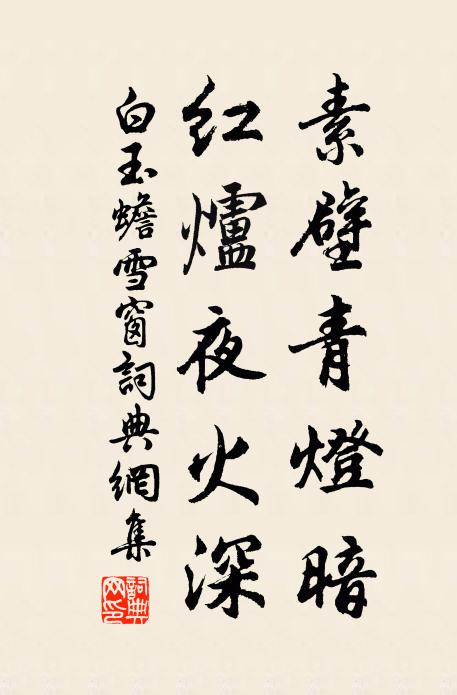 素壁青燈暗
紅爐夜火深
白玉蟾雪窗詞典網集
詞典網印